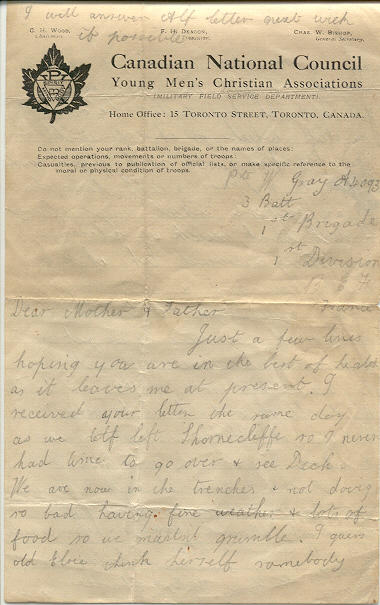 I will answer Alf letter next wish
if possible
C. H. Wood,
Chairman.
F. H. Deacon,
Chas. W. Bishop,
General Secretary.
Canadian National Council
Young Men's Christian Associations
(MILITARY FIELD SERVICE DEPARTMENT)
Home Office: 15 TORONTO STREET, TORONTO, CANADA.
Do not mention your rank, battalion, brigade, or the names of places:
Expected operations, movements or numbers of troops:
Casualties, previous to publication of official lists, or make specific reference to the
moral or physical condition of troops.
Pte W Gray
3 Batt
1st Brigade
1st Division
B E F
France
Dear Mother & Father
Just a few lines
hoping you are in the best of health
as it leaves me at present. I
received your letter the same day
as we left Shornecliffe so I never
had time to go over & see Dick.
We are now in the trenches & not doing
so bad having fine weather & lots of
food so we mustnt grumble. I guess
old Elsie think herself somebody